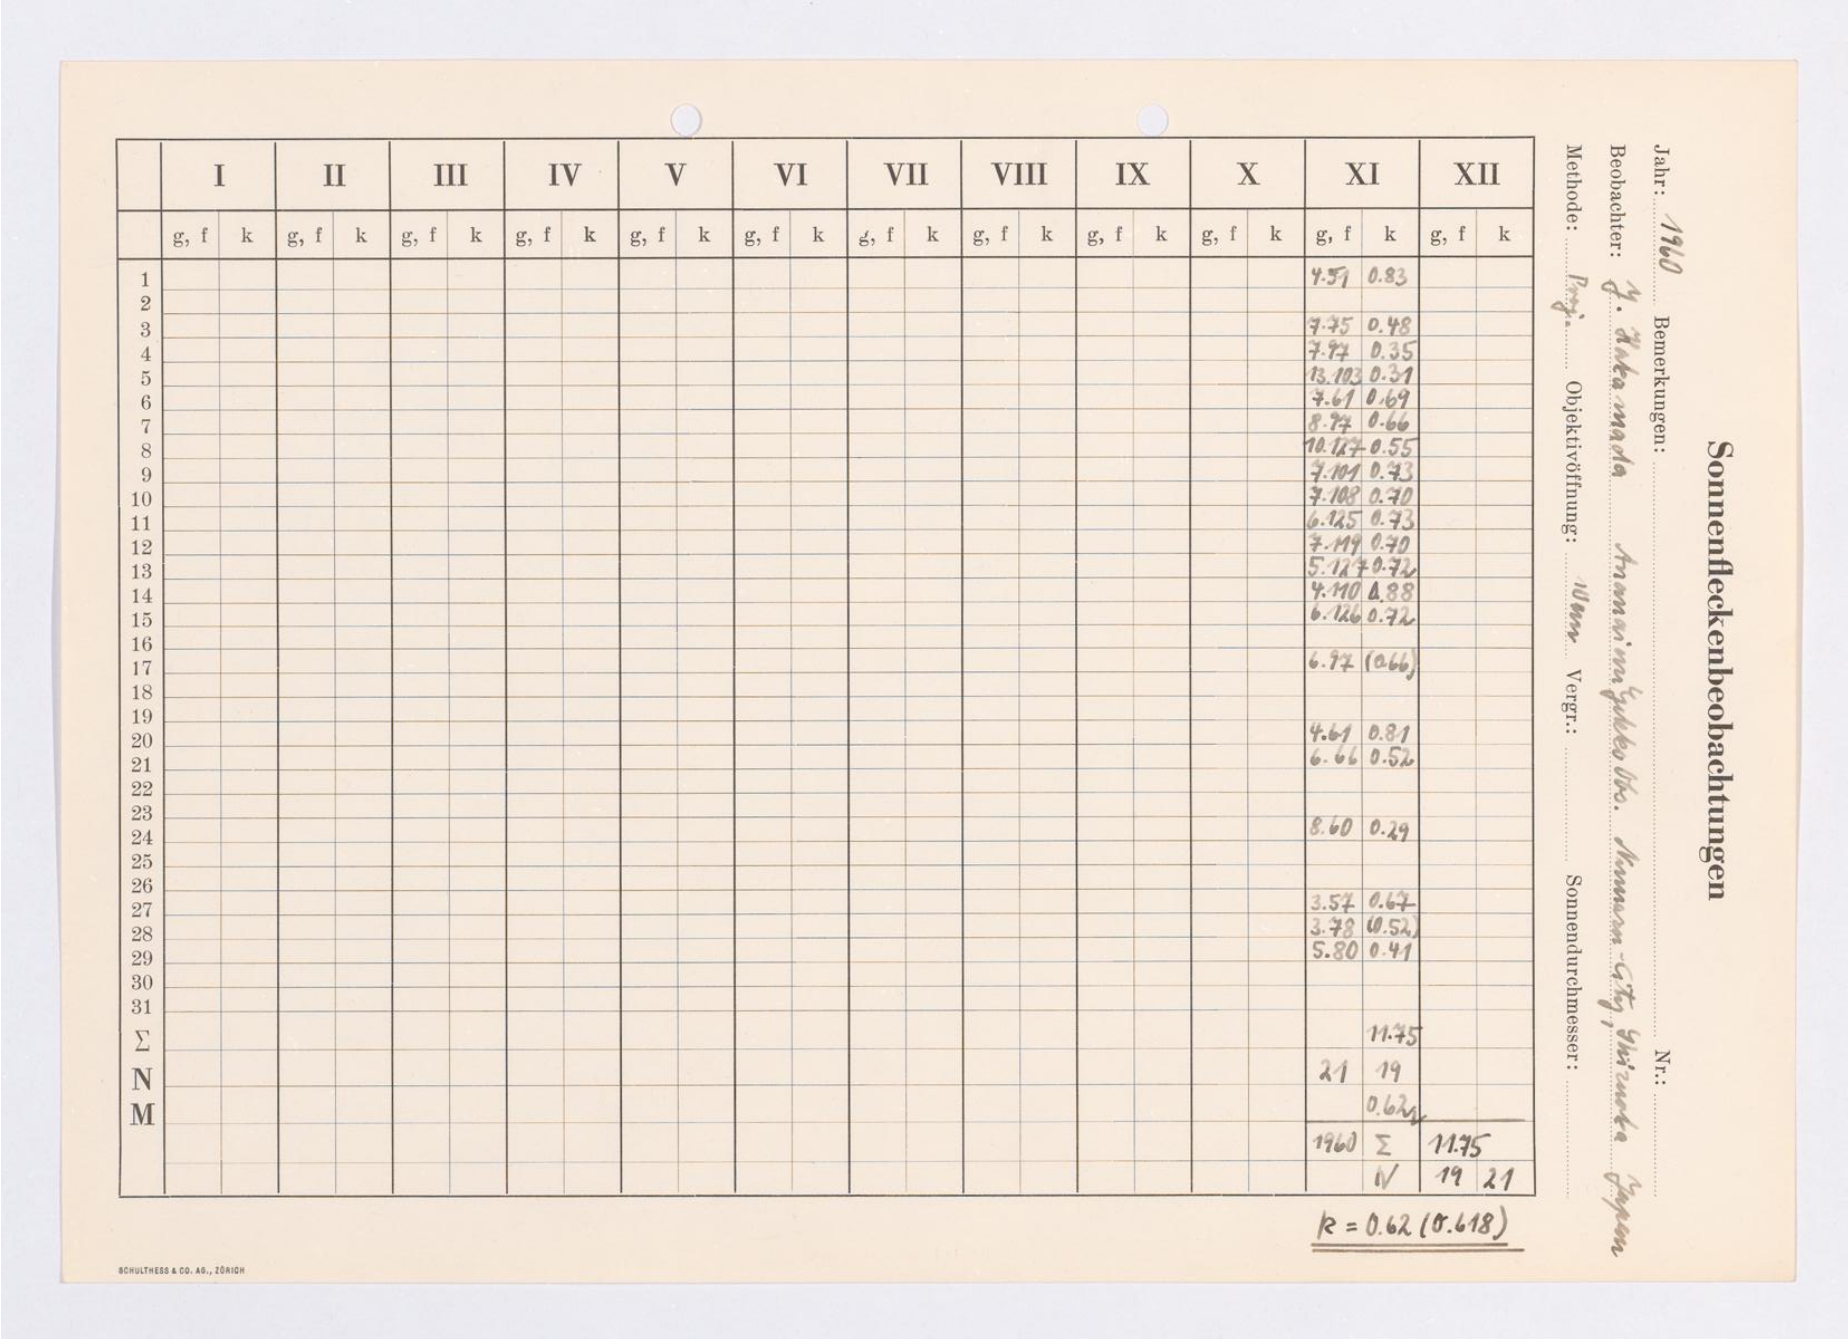 Sonnenfleckenbeobachtungen
Jahr: 1960 Bemerkungen: Nr.:
Beobachter: Y. Hakamada City, Japan
Methode: Proj. Objektivöffnung: 10 cm Vergr.: Sonnendurchmesser:
I II III IV V VI VII VIII IX X XI XII
g, f k g, f k g, f k g, f k g, f k g, f k g, f k g, f k g, f k g, f k g, f k g, f k
1 4.51 0.83
2
3 7.75 0.48
4 7.97 0.35
5 13.103 0.31
6 7.61 0.69
7 8.97 0.66
8 10.127 0.55
9 7.101 0.73
10 7.108 0.70
11 6.125 0.73
12 7.119 0.70
13 5.127 0.72
14 4.110 0.88
15 6.126 0.72
16
17 6.97 (0.66)
18
19
20 4.61 0.81
21 6.66 0.52
22
23
24 8.60 0.29
25
26
27 3.57 0.67
28 3.78 (0.52)
29 5.80 0.41
30
31
Σ 11.75
N 21 19
M 0.62
1960 Σ 11.75
N 19 21
k = 0.62 (0.618)
SCHULTHESS & CO. AG., ZÜRICH